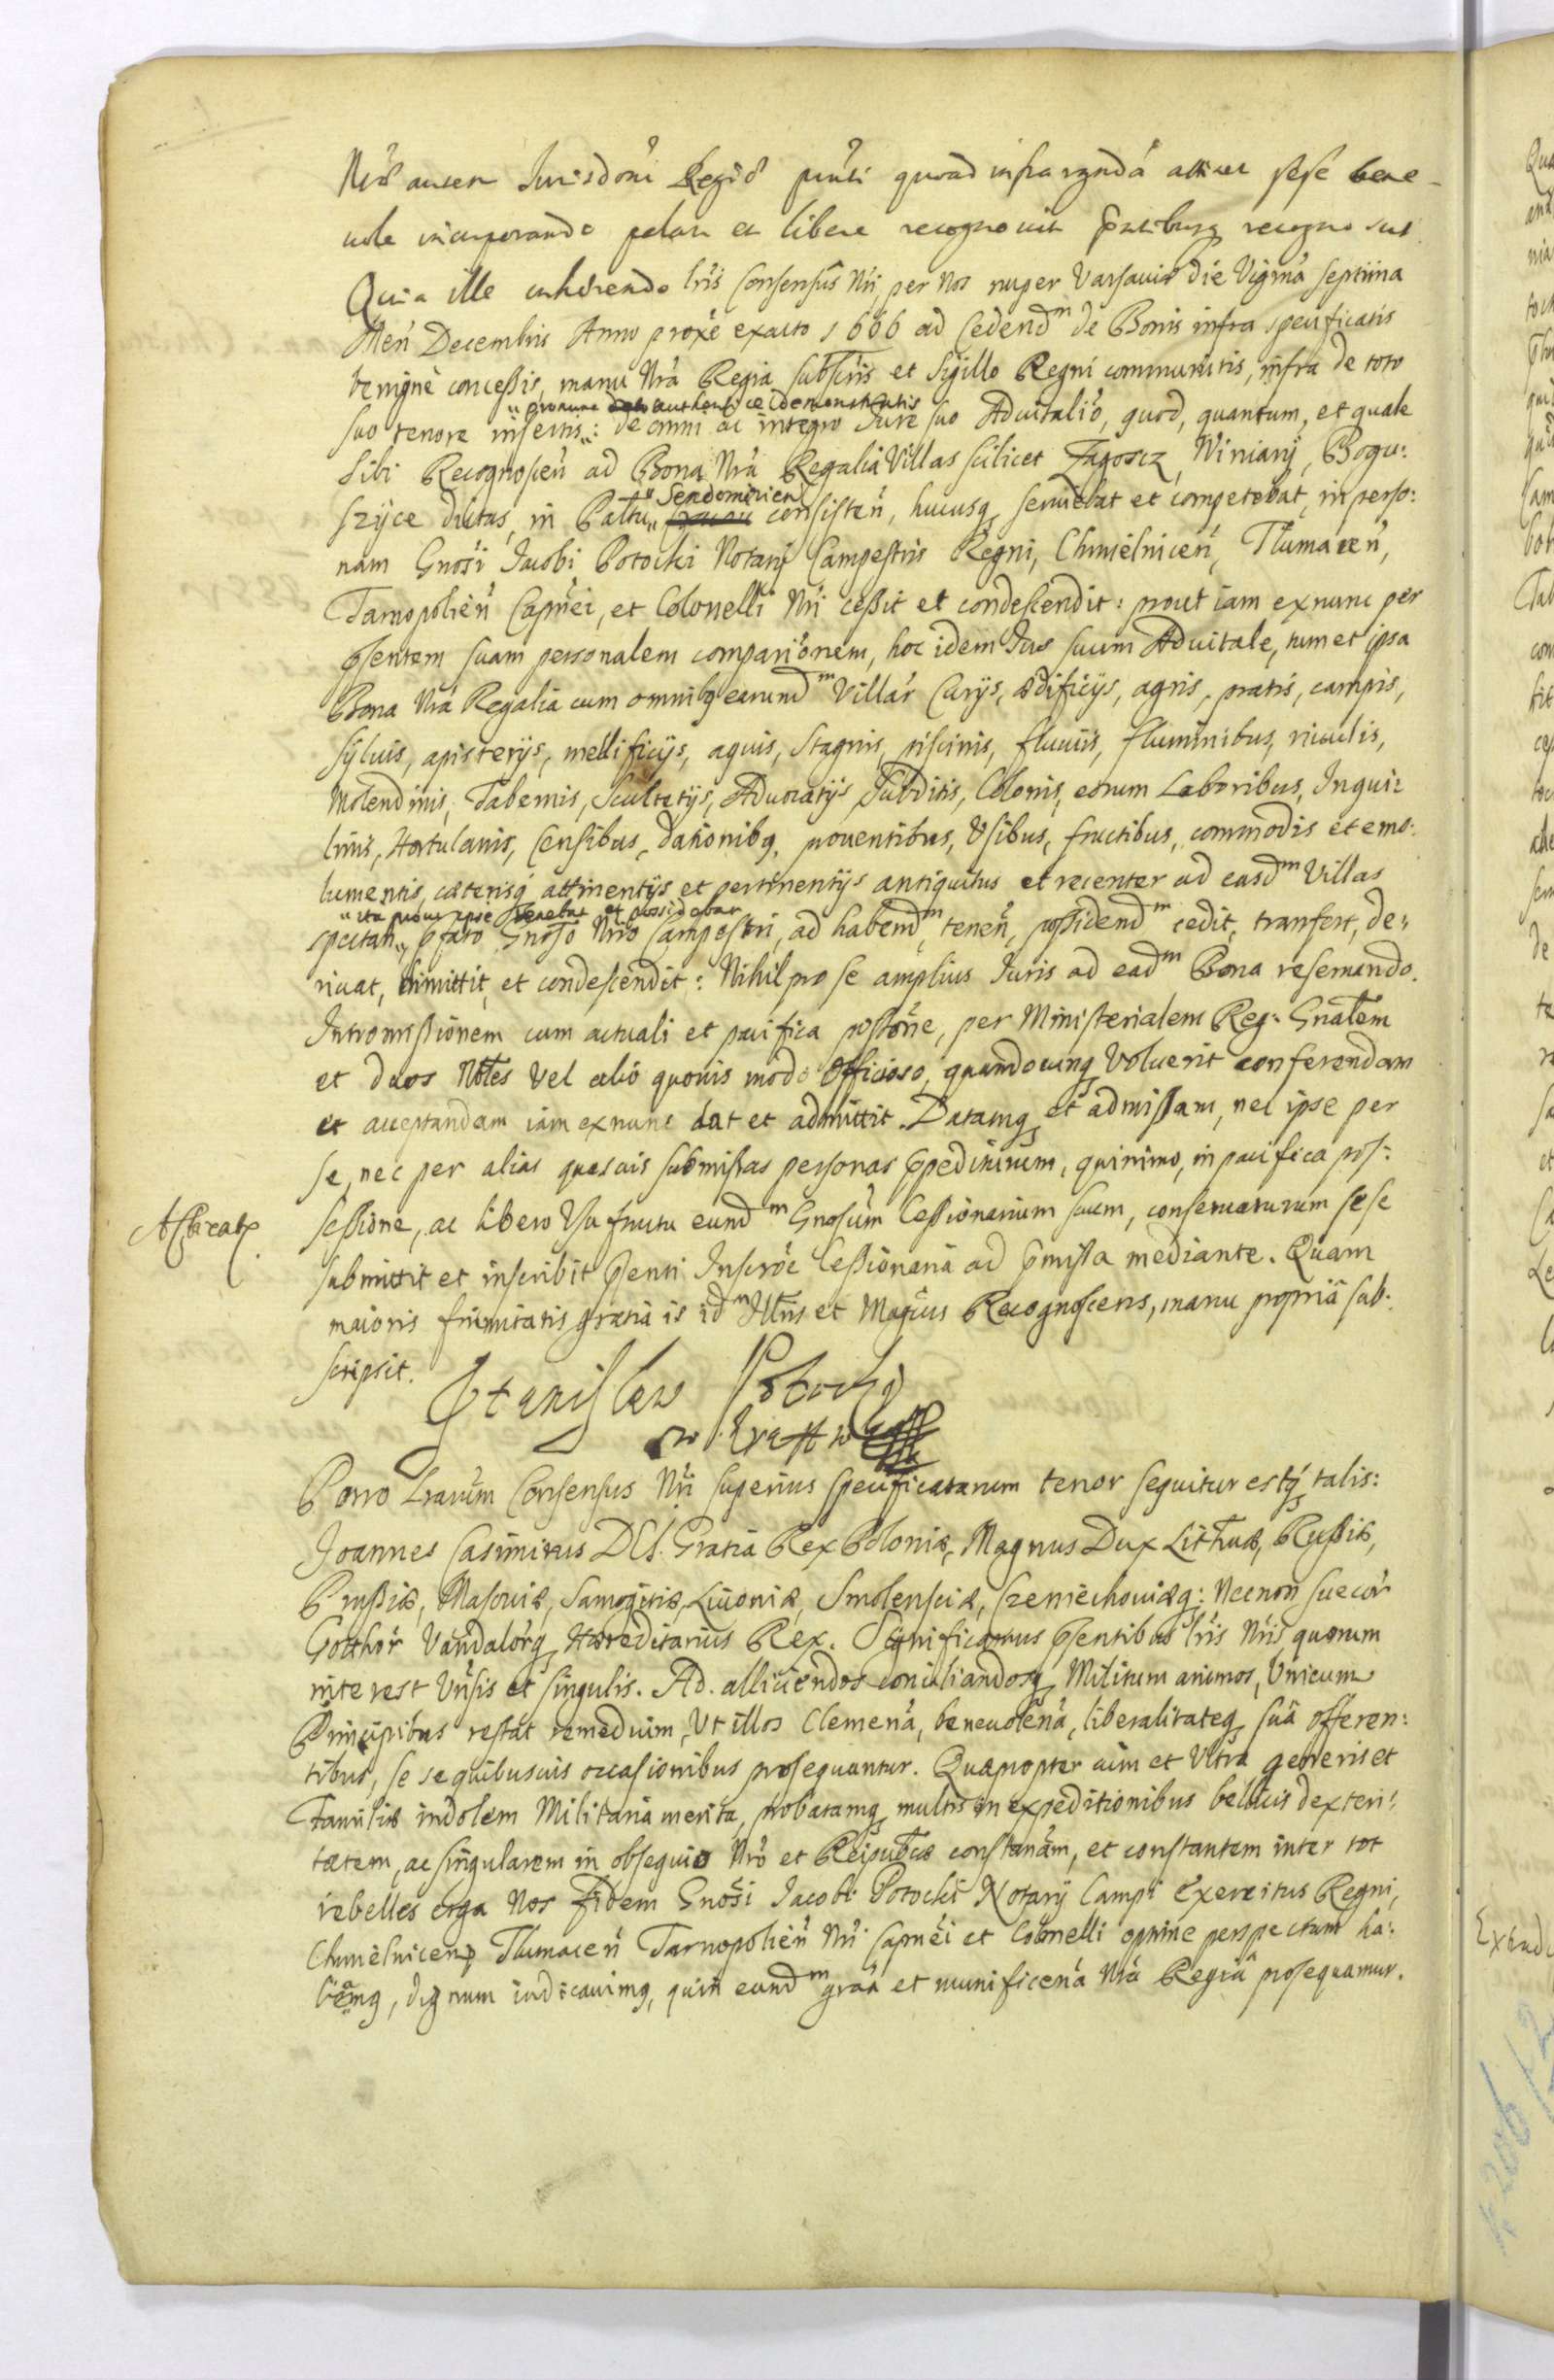 Nrâ autem Jurisdõni Regiæ pnti quoad infrascndâ attinet sese bene-
uole incorporando palam et libere recognouit pntibusq recognoscit
Quia ille inhærendo lris Consensûs Nri, per Nos nuper Varsauiæ die Vigmâ septima
Men Decembris Anno proxe exacto 1666 ad Cedendm de Bonis infra specificatis
benignè concessis, manu Nrâ Regia subscris et Sigillo Regni communitis, infra de toto
" pronunc authentice demonstratis
suo tenore insertis": de omni ac integro Jure suo Aduitalio, quod, quantum, et quale
sibi Recognoscen ad Bona Nra Regalia Villas scilicet Zagoscz, Winiary, Bogu:
" Sendomirien
szyce dictas, in Pattu" consisten, hucusq seruiebat et competebat, in perso:
nam Gnosi Jacobi Potocki Notarij Campestris Regni, Chmielnicen, Tlumacen,
Tarnopolien Capnei, et Colonelli Nri cessit et condescendit: prout iam exnunc per
psentem suam personalem comparionem, hoc idem Jus suum Aduitale, tum et ipsa
Bona Nra Regalia cum omnibq earundm Villar Curijs, ædificijs, agris, pratis, campis,
syluis, apisterijs, mellificijs, aquis, stagnis, piscinis, fluuiis, fluminibus, riuulis,
Molendinis, Tabernis, Scultetijs, Aduocatijs Subditis, Colonis, eorum Laboribus, Inqui:
linis, Hortulanis, Censibus, dationibq, prouentibus, Vsibus, fructibus, commodis et emo:
lumentis, cæterisq attinentijs et pertinentijs antiquitus et recenter ad easdm Villas
" ita prout ipse tenebat et possidebat
spectan" pfato Gnoso Nrio Campestri, ad habendm, tenen, possidendm cedit, transfert, de:
riuat, dimittit, et condescendit: Nihil pro se amplius Juris ad eadm Bona reseruando.
Intromissionem cum actuali et pacifica possone, per Ministerialem Reg: Gnalem
et duos Nbles Vel alio quouis modo officioso, quandocunq Voluerit conferendam
et acceptandam iam exnunc dat et admittit. Datamq et admissam, nec ipse per
se, nec per alias quasuis submissas personas ppediturum, quinimo, in pacifica pos:
sessione, ac libero Vsufructu eundm Gnosum Cessionarium suum, conseruaturum sese
submittit et inscribit psenti Inscroe Cessionaria ad pmissa mediante. Quam
maioris firmitatis gratia is idm Illris et Magcus Recognoscens, manu propriâ sub:
scripsit.
Stanislaw Potocki
Porro Lrarum Consensus Nri superius specificatarum tenor sequitur estq talis:
Joannes Casimirus DEI Gratia Rex Poloniæ, Magnus Dux Lithuæ, Russiæ,
Prussiæ, Masouiæ, Samogitiæ, Liuoniæ, Smolensciæ, Czerniechouiæq: Necnon Suecor
Gotthor Vandalorq Hæreditarius Rex. Significamus psentibus lris Nris quorum
interest Vnsis et singulis. Ad alliciendos conciliandosq Militum animos, Vnicum
Principibus restat remedium, Vt illos Clemenâ, beneuolenâ, liberalitateq suâ offeren:
tibus, se se quibusuis occasionibus prosequantur. Quapropter cum et Vltra generis et
Familiæ indolem Militaria merita, probatamq multis in expeditionibus bellicis dexteri:
tatem, ac singularem in obsequio Nro et Reipublcæ constanâm, et constantem inter tot
rebelles erga Nos fidem Gnosi Jacobi Potocki Notarij Campi Exercitus Regni,
Chmielnicen, Tlumacen Tarnopolien Nri Capnei et Colonelli optime perspectam ha:
beamq, dignum iudicauimq, quin eundm grâa et munificenâ Nrâ Regiâ prosequamur.